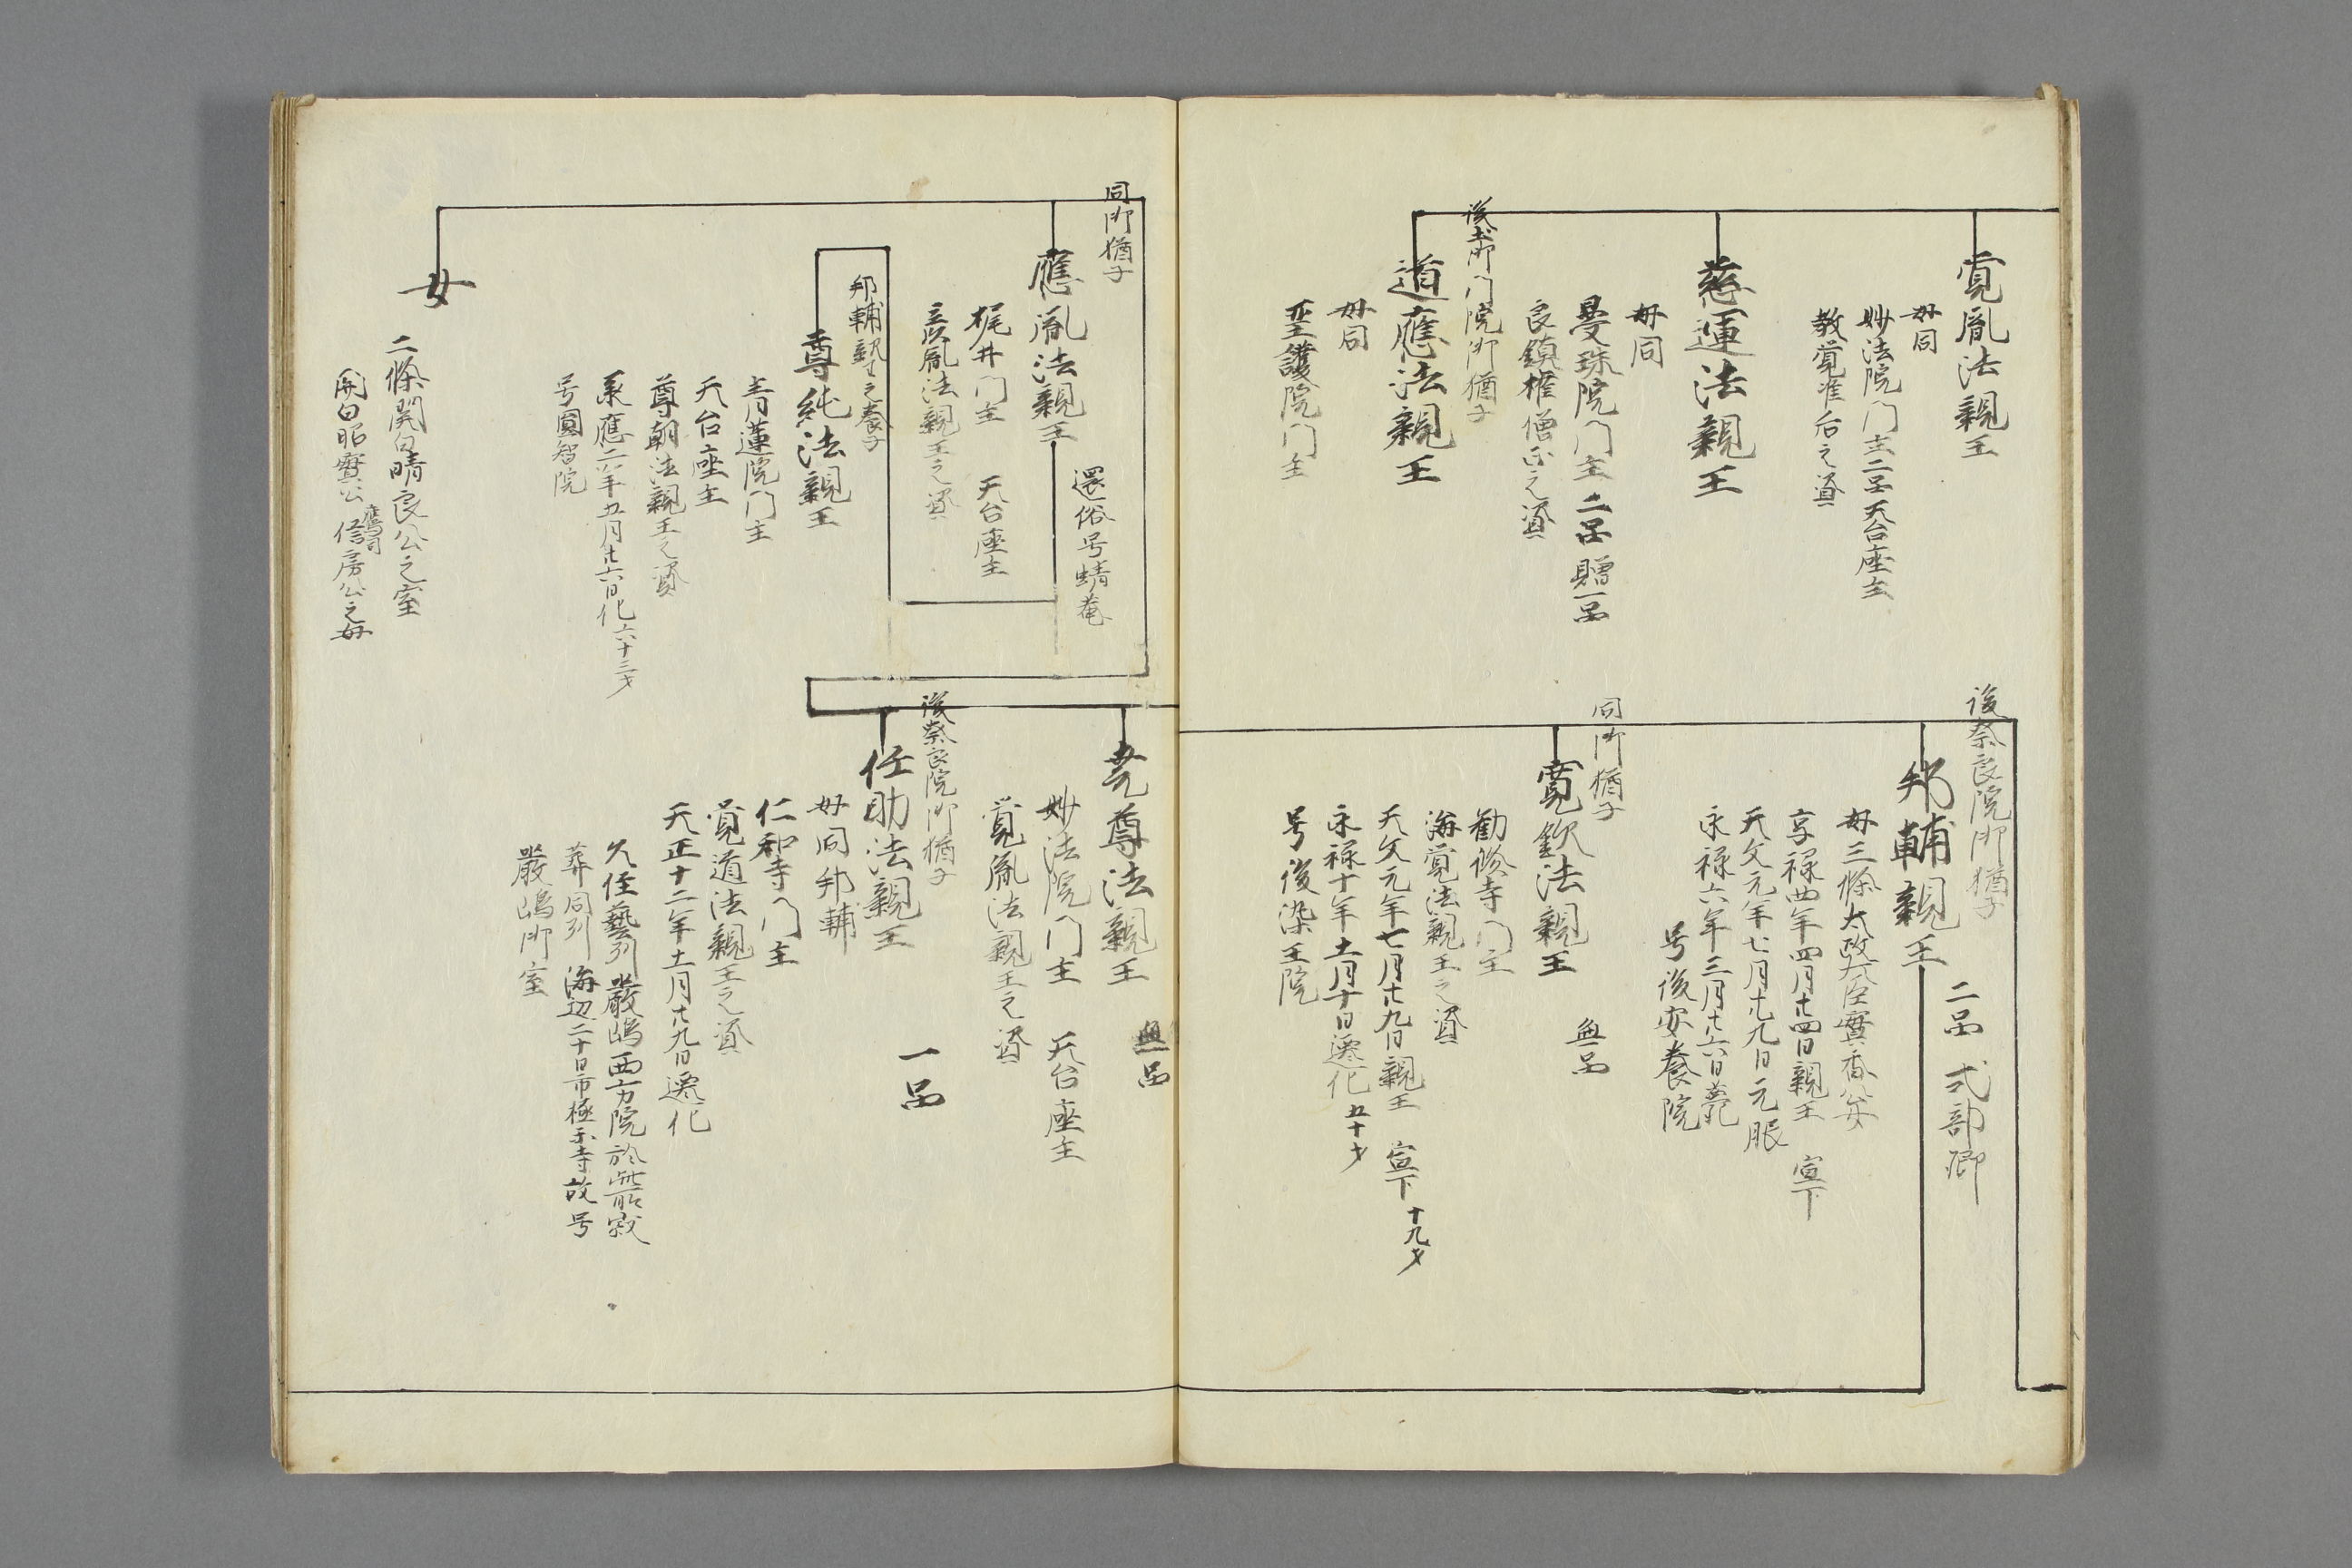 覚胤法親王
母同
妙法院门主二品天台座主
教覚准后之資
慈運法親王
母同
曼珠院门主 二品 贈一品
良鎮権僧正之資
後土御门院御猶子
道應法親王
母同
聖護院门主
後奈良院御猶子
邦輔親王
二品 式部卿
母三條太政大臣實香公女
享禄四年四月廿四日親王 宣下
天文元年七月廿九日元服
永禄六年三月廿六日薨
号後安養院
同御猶子
寛欽法親王
無品
勧修寺门主
海覚法親王之資
天文元年七月廿九日親王 宣下 十九才
永禄十年十一月十日遷化 五十才
号後染王院
同御猶子
應胤法親王
還俗号蜻菴
梶井门主 天台座主
彦胤法親王之資
邦輔親王之養子
尊純法親王
青蓮院门主
天台座主
尊朝法親王之資
承應二年五月廿六日化六十三才
号圓智院
女
二條関白晴良公之室
関白昭實公 鷹司信房公之母
尭尊法親王
無品
妙法院门主 天台座主
覚胤法親王之資
後奈良院御猶子
任助法親王
一品
母同邦輔
仁和寺门主
覚道法親王之資
天正十二年十一月廿九日遷化
久住藝州嚴嶋西方院於此所寂
葬同州海辺二十日市極楽寺故号
嚴嶋御室